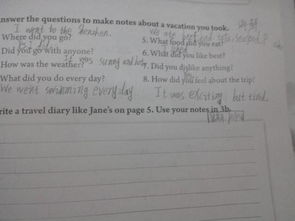 nswer the questions to make notes about a vacation you took.
I went to the beach.
Where did you go?
5. What food did you eat?
Did you go with anyone?
6. What did you like best?
How was the weather?
was sunny and hot
7. Did you dislike anything?
What did you do every day?
8. How did you feel about the trip?
We went swimming everyday
It was exciting but tired
rite a travel diary like Jane's on page 5. Use your notes in 3b.